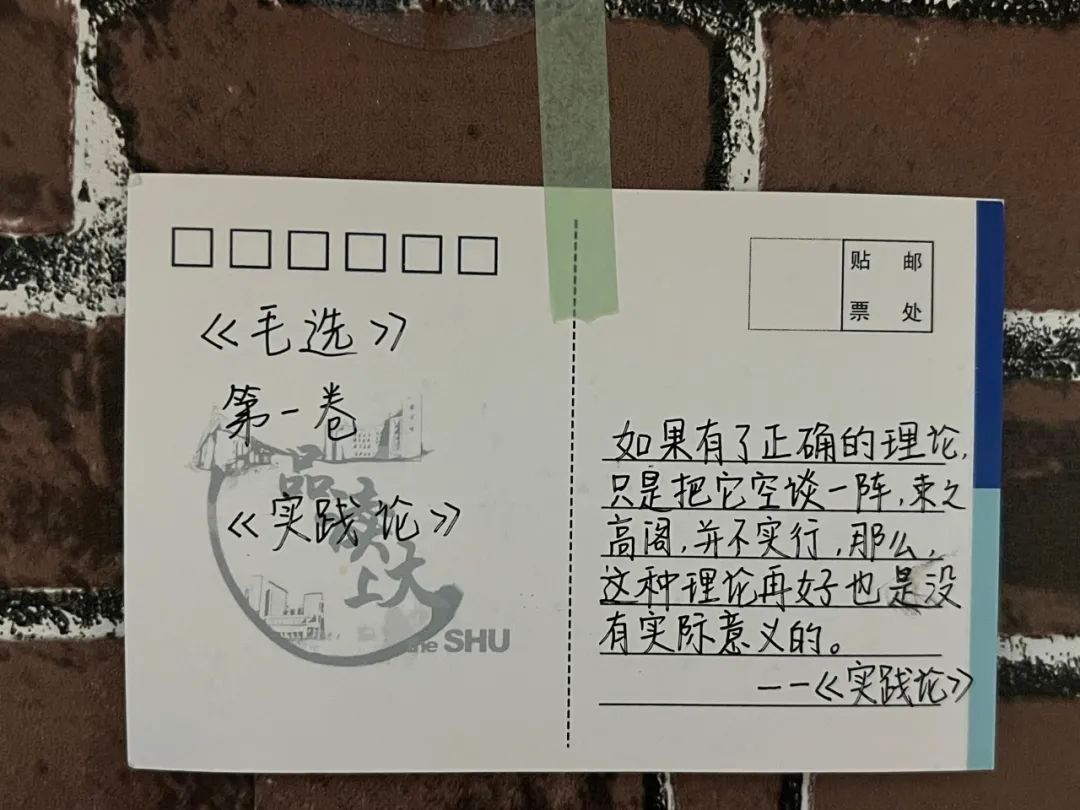 《毛选》
第一卷
《实践论》
品读
上大
the SHU
贴 邮
票 处
如果有了正确的理论,
只是把它空谈一阵,束之
高阁,并不实行,那么,
这种理论再好也是没
有实际意义的。
——《实践论》